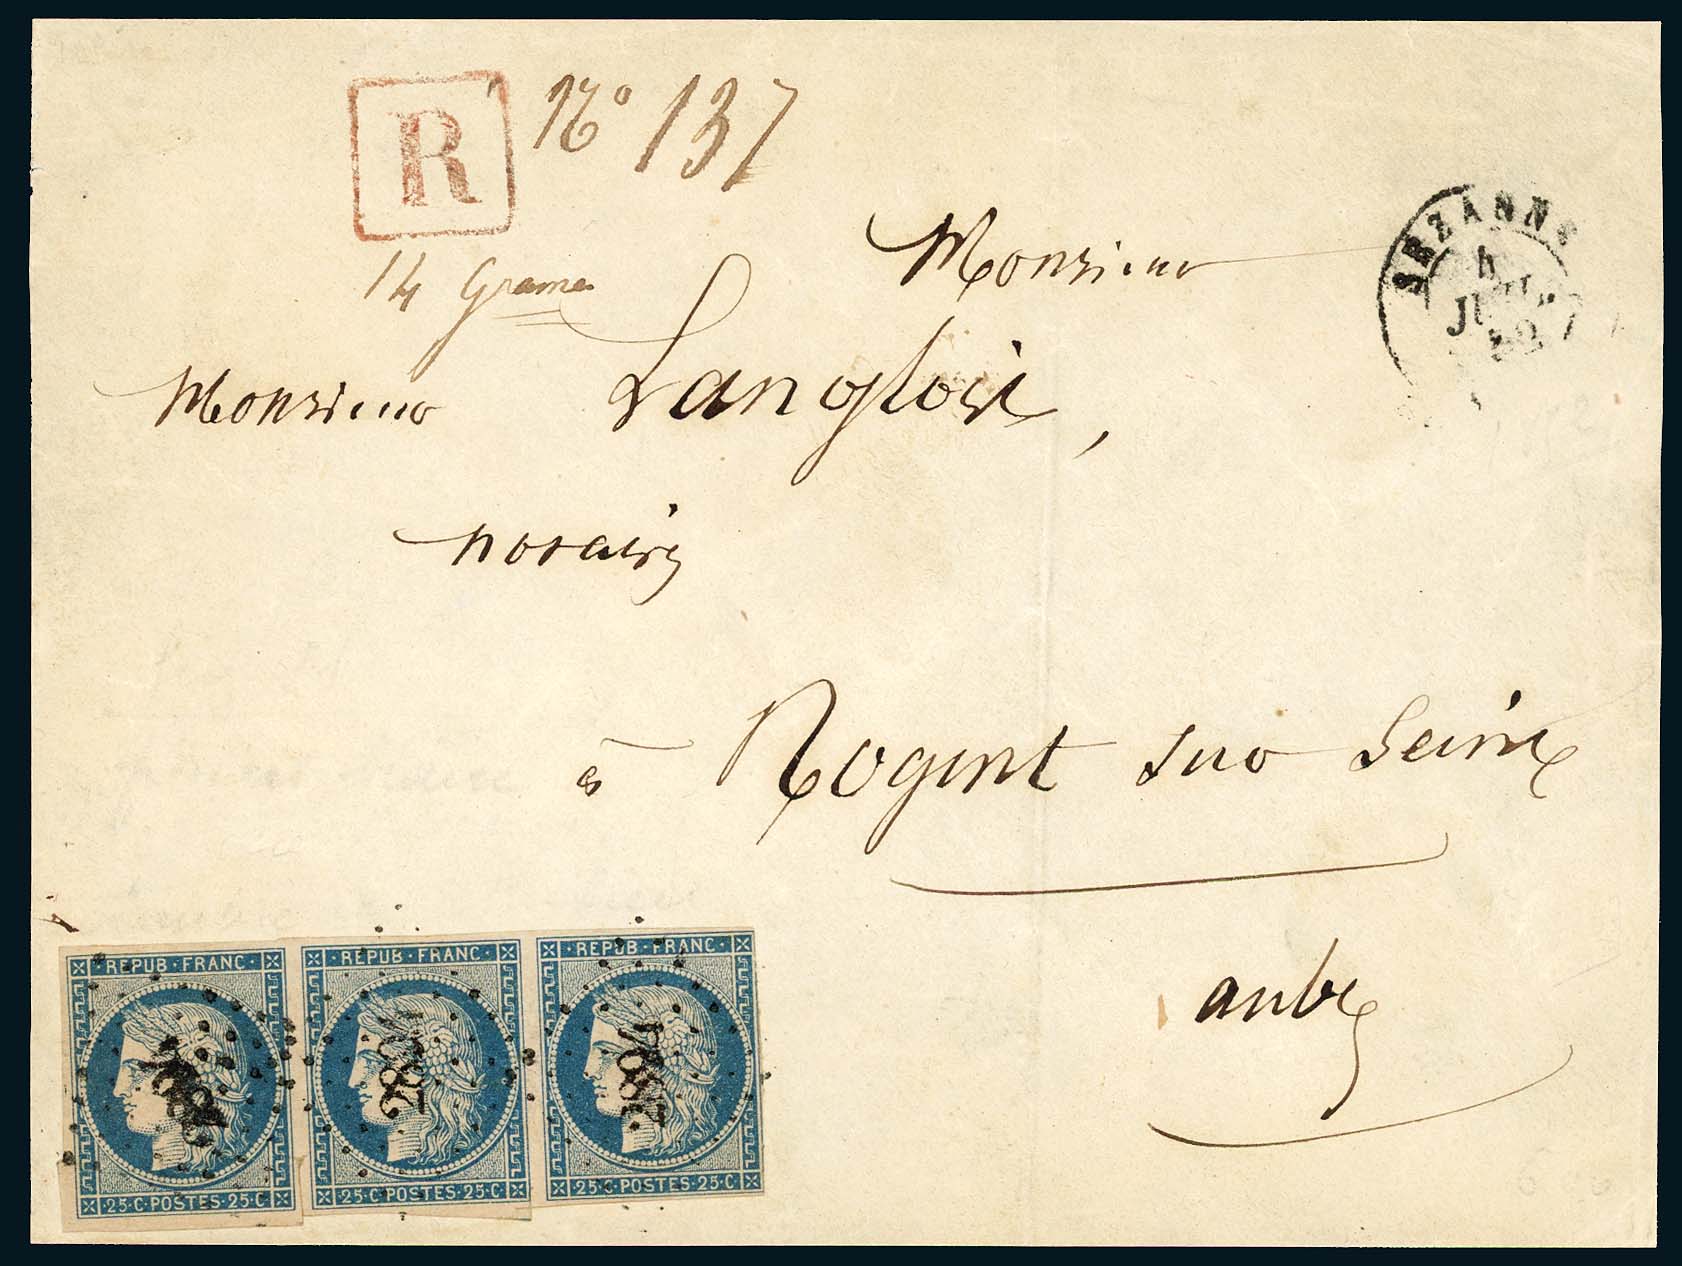 R
N° 137
SEZANNE
4
JUIL.
52
Monsieur
14 Grames
Monsieur Langlois,
notaire
à Nogent sur Seine
aube
REPUB·FRANC
REPUB·FRANC·
REPUB·FRANC·
2884
2884
2884
25·C·POSTES·25·C
25·C·POSTES·25·C
25·C·POSTES·25·C